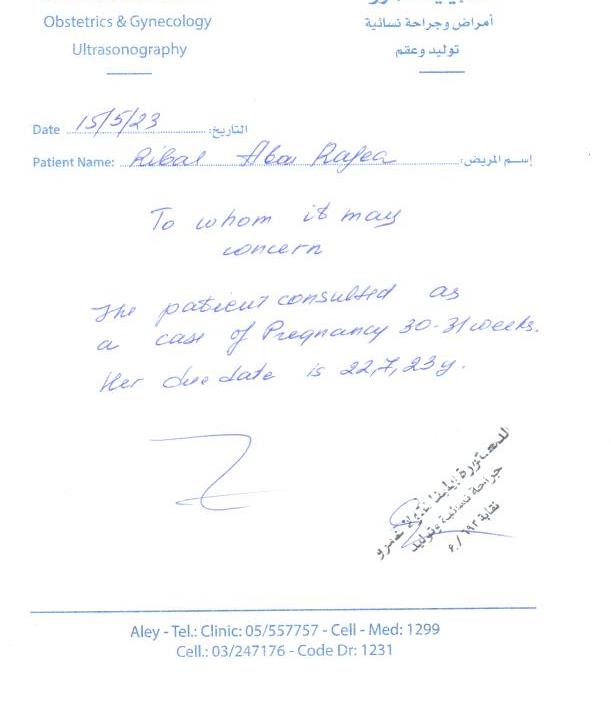 Obstetrics & Gynecology
أمراض وجراحة نسائية
Ultrasonography
توليد وعقم
Date 15/5/23 التاريخ:
Patient Name: Ribal Abou Rafea إسم المريض:
To whom it may
concern
The patient consulted as
a case of Pregnancy 30-31 weeks.
Her due date is 22,7,23 y.
الدكتورة
جراحة نسائية وتوليد
نقابة
Aley - Tel.: Clinic: 05/557757 - Cell - Med: 1299
Cell.: 03/247176 - Code Dr: 1231